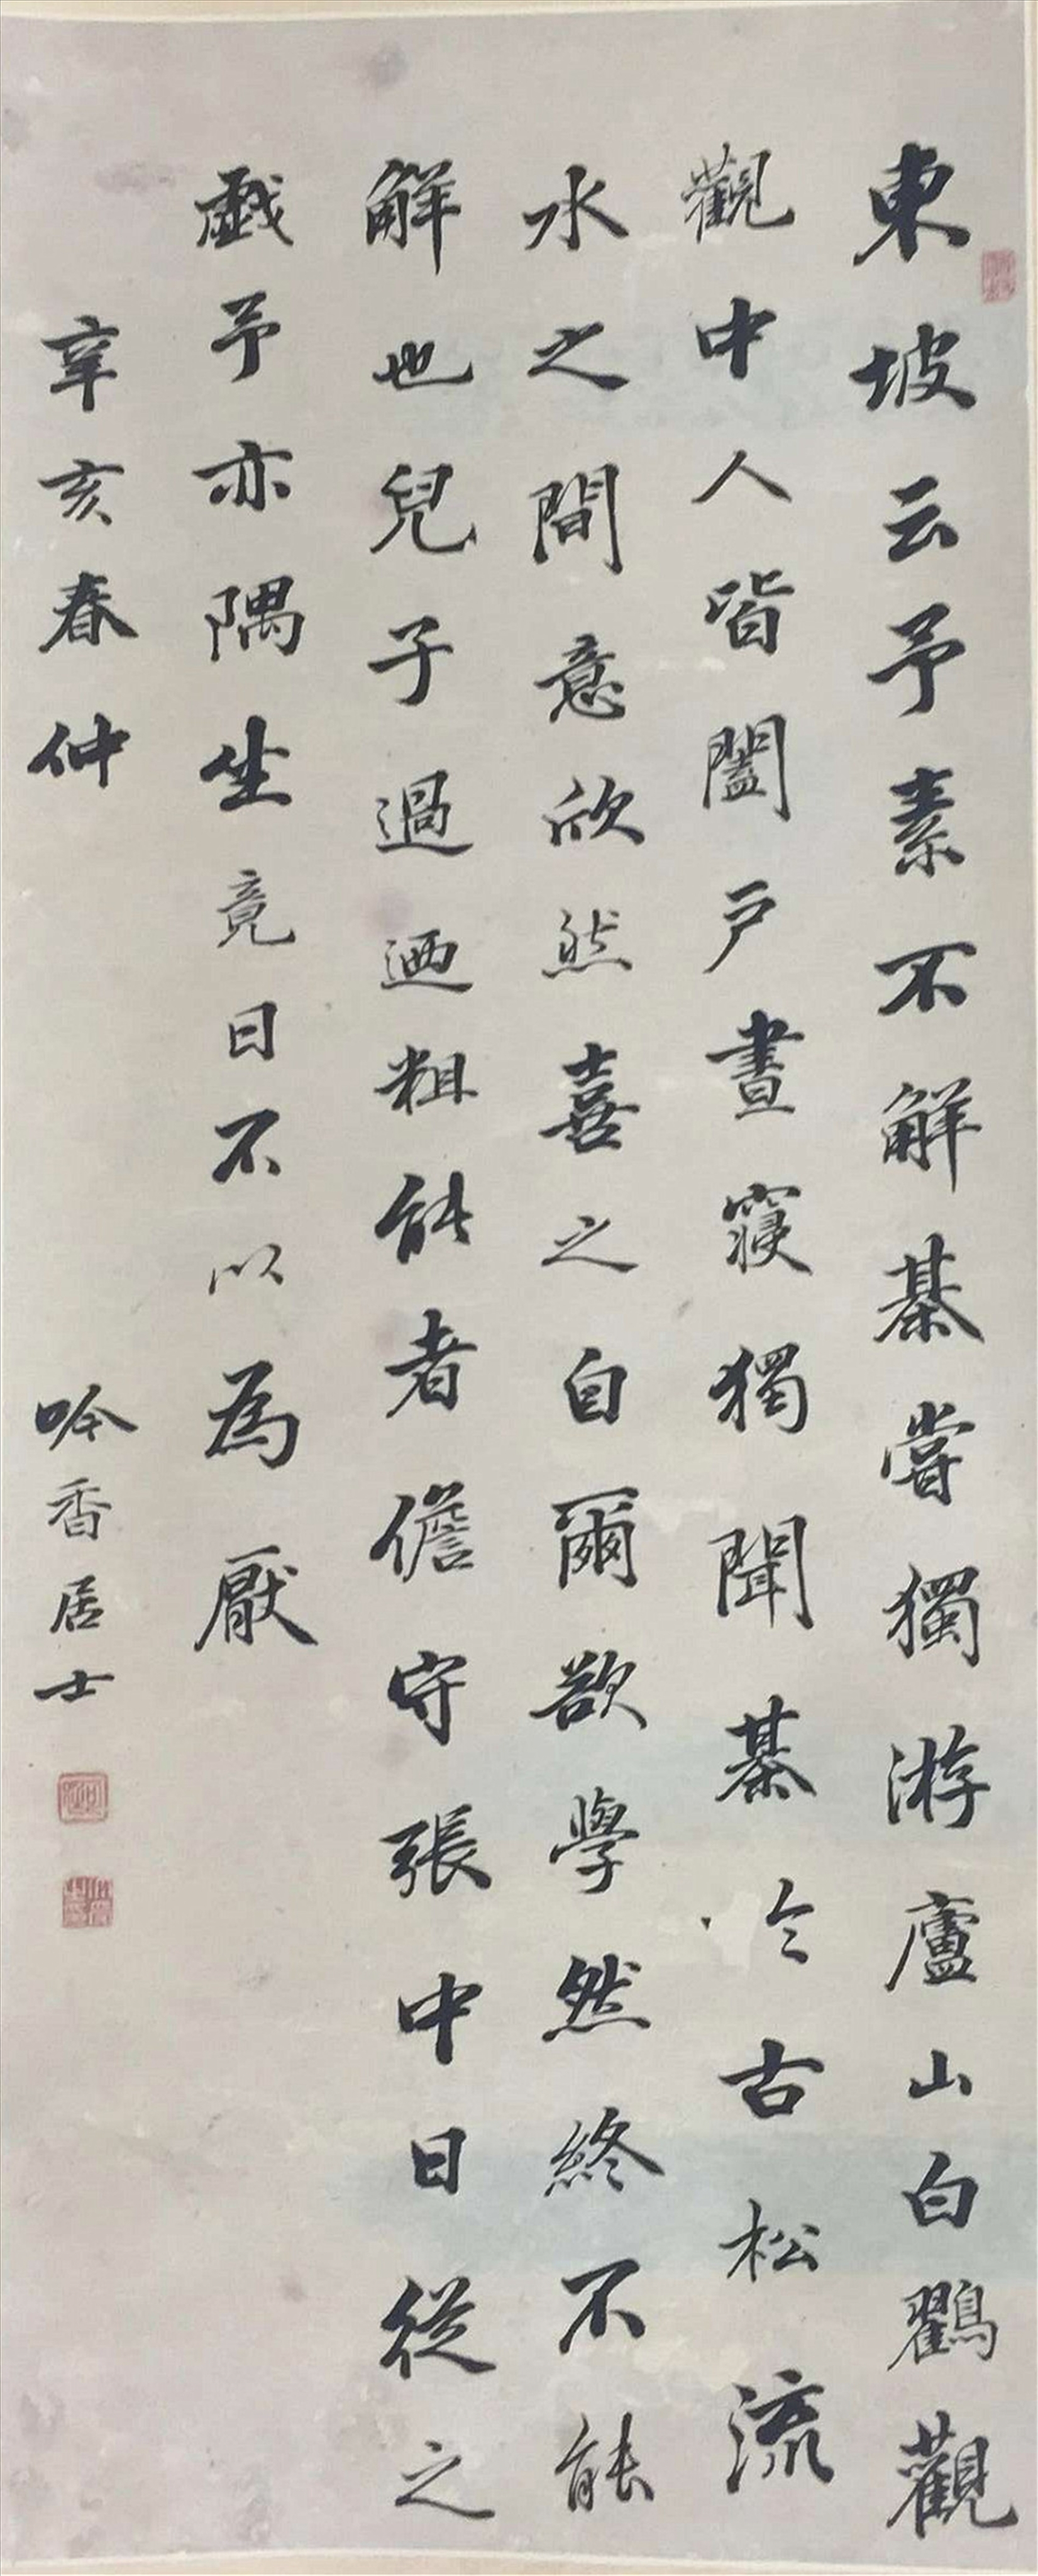 東坡云予素不解棊嘗獨游廬山白鸛觀
觀中人皆闔戶晝寢獨聞棊今古松流
水之間意欣然喜之自爾欲學然終不能
解也兒子過迺粗能者儋守張中日從之
戲予亦隅坐竟日不以為厭
辛亥春仲
吟香居士